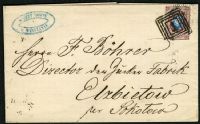 Herrn F Böhrer
Director der Zucker Fabrik
Elzbietow
per Sokolow